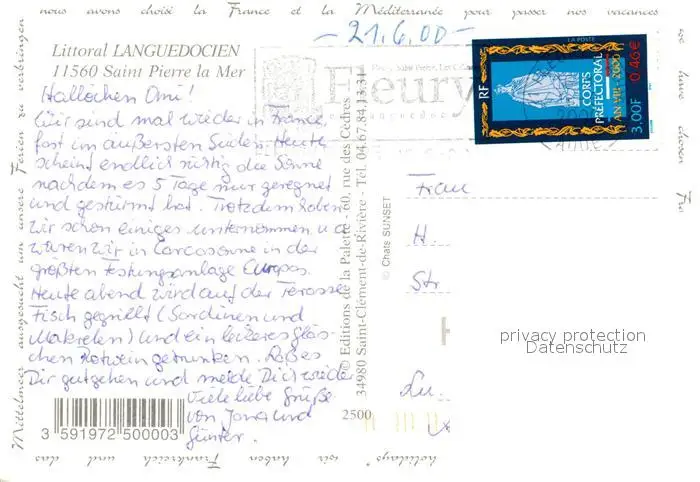 nous avons choisi la France et la Méditerranée pour passer nos vacances
we have chosen Fra
holidays" wir haben Frankreich und das
Mittelmeer ausgesucht um unsere Ferien zu verbringen
-21.6.00-
Littoral LANGUEDOCIEN
11560 Saint Pierre la Mer
Hallöchen Omi!
Wir sind mal wieder in France,
fast im äußersten Süden. Heute
scheint endlich richtig die Sonne
nachdem es 5 Tage nur geregnet
und gestürmt hat. Trotzdem haben
wir schon einiges unternommen u.a.
waren wir in Carcasonne in der
größten Festungsanlage Europas.
Heute abend wird auf der Terasse
Fisch gegrillt (Sardinen und
Makrelen) und ein leckeres Gläs-
chen Rotwein getrunken. Laß es
Dir gutgehen und melde Dich wieder
Viele liebe Grüße
von Jona und
Günter.
3 591972 500003
2500
© Editions de la Palette - 60, rue des Cèdres
34980 Saint-Clément-de-Rivière - Tél. 04.67.84.13.31
© Chats SUNSET
Fleury
LA POSTE
RF
CORPS
PRÉFECTORAL
AN VIII - 2000
3,00F 0,46€
Frau
H
Str
Lu
privacy protection
Datenschutz